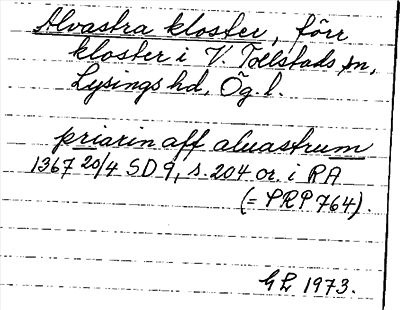 Alvastra kloster, förr
kloster i V. Tollstads sn,
Lysings hd, Ög. l.
priarin aff aluastrum
1367 20/4 SD 9, s. 204 or. i RA
(= PRP 764).
GL 1973.